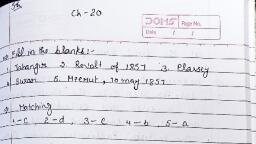 Ch-20
DOMS Page No.
Date / /
Fill in the blanks:-
1. Jahangir 2. Revolt of 1857 3. Plassey
4. Surat 5. Meerut, 10 may 1857
Matching
1-c 2-d, 3-c 4-b 5-a